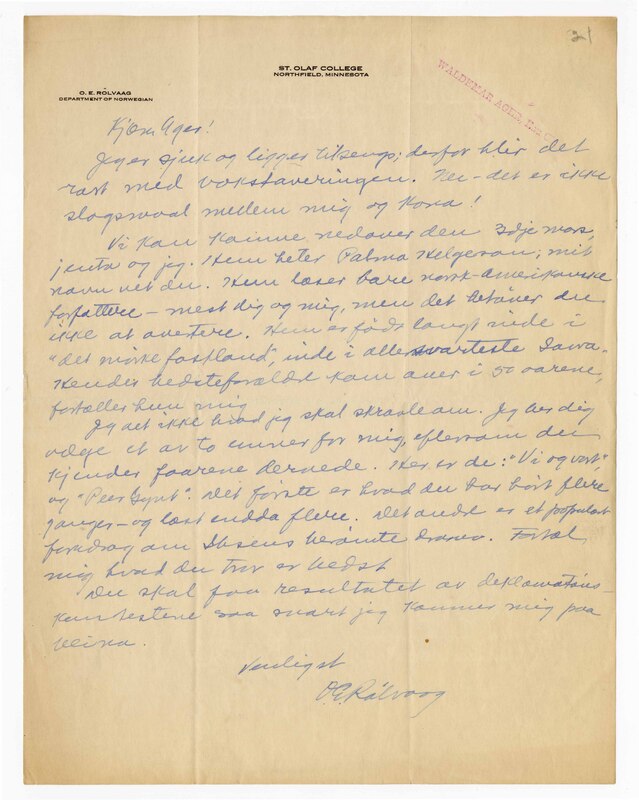 21
ST. OLAF COLLEGE
NORTHFIELD, MINNESOTA
WALDEMAR AGER,
O. E. RÖLVAAG
DEPARTMENT OF NORWEGIAN
Kjære Ager!
Jeg er sjuk og ligger tilsengs; derfor blir det
rart med bokstaveringen. Nei – det er ikke
slagsmaal mellem mig og Kona!
Vi kan komme nedover den 3dje mars,
jenta og jeg. Hun heter Palma Helgeson; mit
navn vet du. Hun læser bare norsk-amerikanske
forfattere – mest dig og mig, men det behøver du
ikke at avertere. Hun er født langt inde i
"det mørke fastland", inde i aller svarteste Iowa.
Hendes bedsteforældre kom over i 50 aarene,
fortæller hun mig
Jeg vet ikke hvad jeg skal skraale om. Jeg ber dig
vælge et av to emner for mig, eftersom du
kjender faarene dernede. Her er de: "Vi og vort",
og "Peer Gynt". Det første er hvad du har hørt flere
ganger – og læst endda flere. Det andre er et populært
foredrag om Ibsens berømte drama. Fortæl
mig hvad du tror er bedst
Du skal faa resultatet av deklamations-
kontestene saa snart jeg kommer mig paa
beina.
Venligst
O.E. Rölvaag